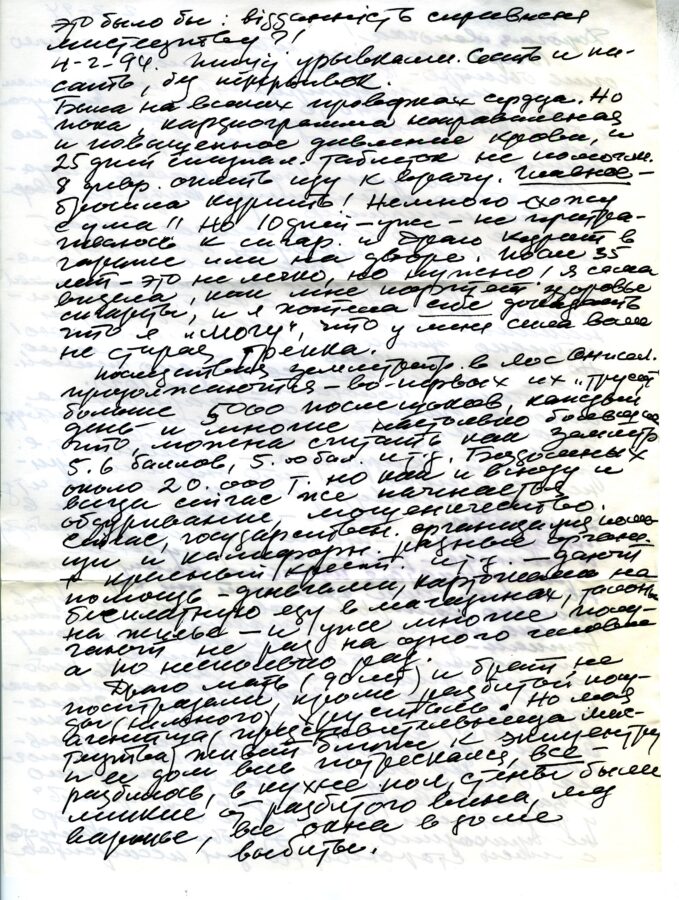 это было бы: відданність справжня
мистецтву?!
4-2-94. Пишу урывками. Сесть и пи-
сать, без перерывок.
Была на всяких проводках сердца. Но
пока, кардиограмма направленая
и повышенное давление крови, и
25 дней спецпал. таблеток не помогли.
8 февр. опять иду к врачу. Главное –
бросила курить! Немного схожу
с ума!! Но 10 дней – уже – не притра-
гиваюсь к сигар. и Драго курит в
гараже или на дворе. После 35
лет – это не легко, но нужно! Я сама
видела, как мне портит здоровье
сигареты, и я хотела себе доказать
что я „могу", что у меня сила воли
не старая тренка.
Последствия землетр. в Лос Анжел.
продолжаются – во-первых их „трусит"
больше 5000 послешоков, каждый
день – и многие настолько
что, можна считать как землетр.
5.6 баллов, 5.00 бал. и т.д. Бездомных
около 20.000 т. но как и всюду и
всегда сейчас же начинается
обдуривание, мошеничество.
Сейчас, государствен. организация помо-
щи и калифорн. разные органи.
+ красный крест. и т.д. – дают
помощь – деньгами, карточками на
бесплатную еду в магазинах, талоны
на жилье – и уже многие полу-
чают не раз на одного человека
а по несколько раз.
Драго мать (дома) и брат, не
пострадали, кроме разбитой посу-
ды (немного), хрусталь. Но моя
агентша, (представительница мис-
тецтва) живет ближе к эпицентру
и ее дом весь потрескался, все –
разбилось, в кухне пол, стены были
липкие от разбитого вина, мед
варенье, все окна в доме
выбиты.